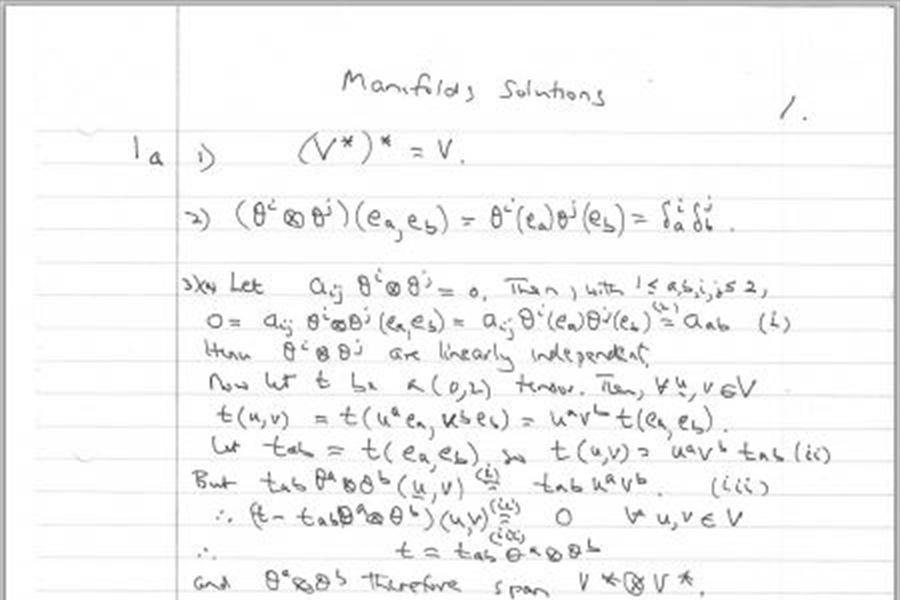 Manifolds Solutions
1.
1a 1) (V*)* = V.
2) (θⁱ ⊗ θʲ)(eₐ, e_b) = θⁱ(eₐ)θʲ(e_b) = δⁱₐ δʲ_b .
3) Let aᵢⱼ θⁱ ⊗ θʲ = 0. Then, with 1 ≤ a,b,i,j ≤ 2,
0 = aᵢⱼ θⁱ⊗θʲ (eₐ, e_b) = aᵢⱼ θⁱ(eₐ)θʲ(e_b) = a_ab (i)
Hence θⁱ ⊗ θʲ are linearly independent.
Now let t be a (0,2) tensor. Then, ∀ u, v ∈ V
t(u,v) = t(uᵃeₐ, vᵇe_b) = uᵃvᵇ t(eₐ, e_b).
Let t_ab = t(eₐ, e_b), so t(u,v) = uᵃvᵇ t_ab (ii)
But t_ab θᵃ⊗θᵇ (u,v) (i)= t_ab uᵃvᵇ. (iii)
∴ (t - t_ab θᵃ⊗θᵇ)(u,v) (ii)= (iii) 0 ∀ u,v ∈ V
∴ t = t_ab θᵃ⊗θᵇ
and θᵃ⊗θᵇ therefore span V*⊗V*.